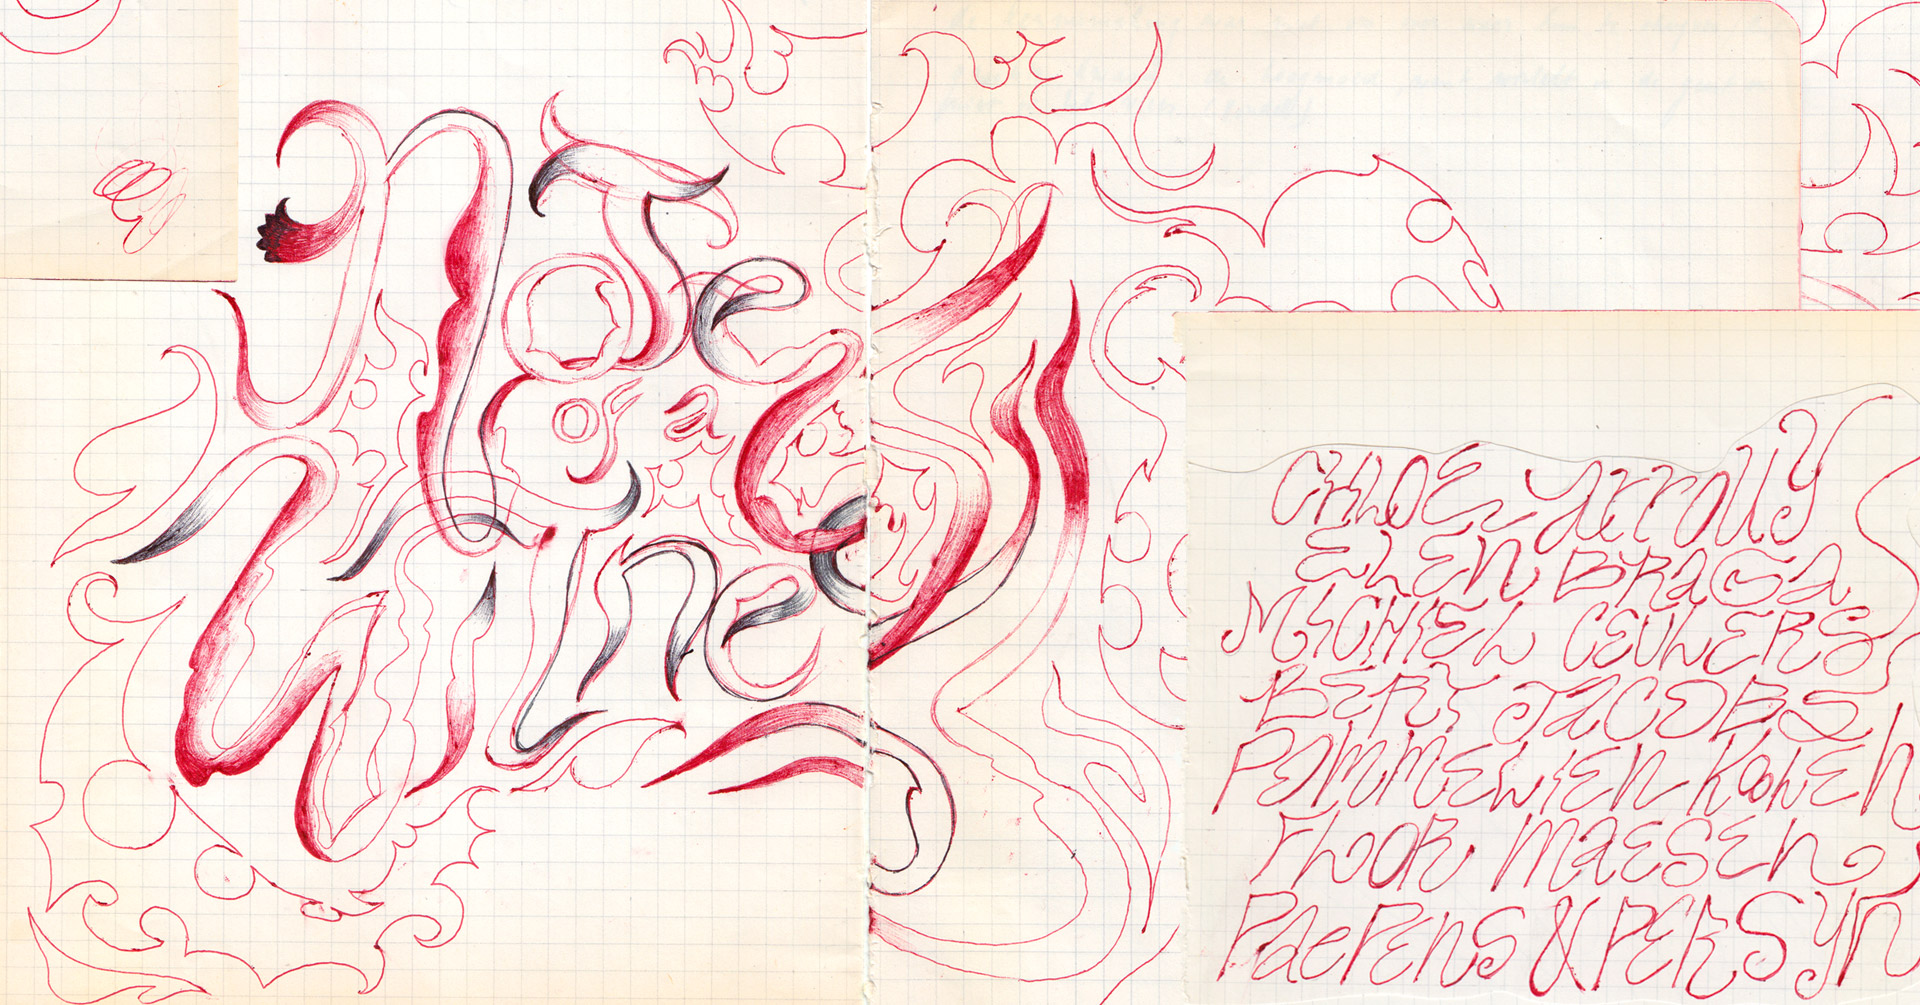 Note
of a
Wine
CHLOE ArrOUY
ELEN BRAGA
MICHIEL CEULERS
BERT JACOBS
POMMELIEN KOOLEN
FLOOR MAESEN
PAePENS & PERSYN